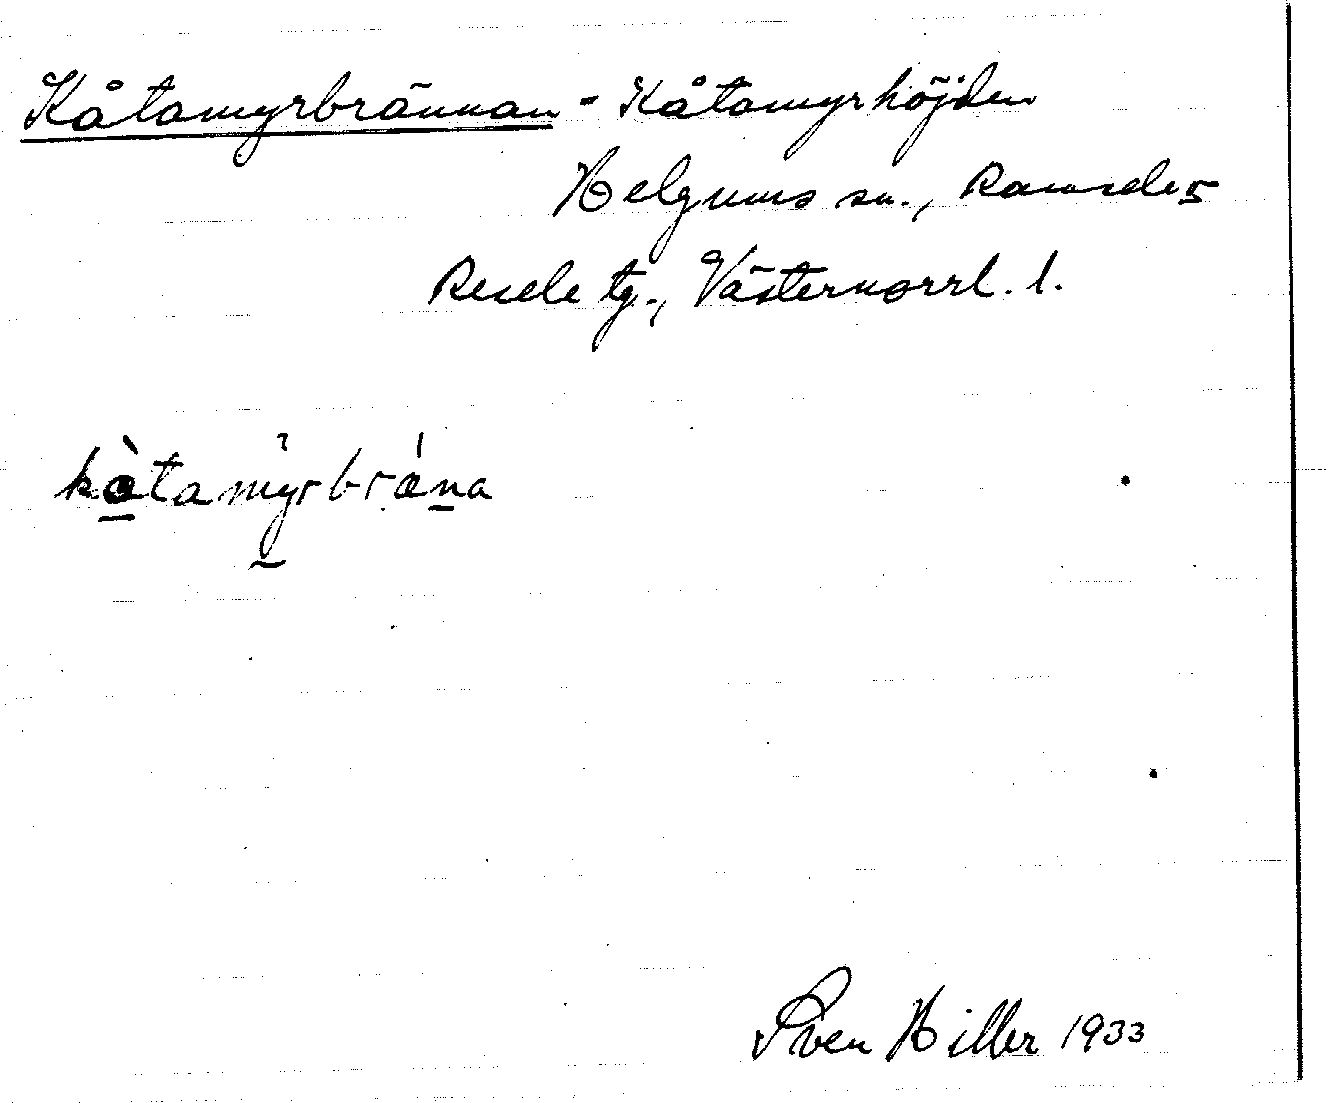 Kåtamyrbrännan = Kåtamyrhöjden
Helgums sn., Ramsele o
Resele tg., Västernorrl. l.
kåtamyrbräna
Sven Hiller 1933